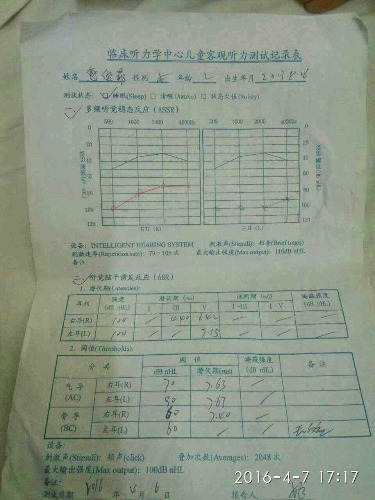 临床听力学中心儿童客观听力测试记录表
姓名 性别 年龄 出生年月
测试状态: 睡眠(Sleep) 清醒(Awake)
一、多频听觉稳态反应(ASSR)
500 1000 2000 4000Hz 500 1000 2000 4000Hz
右耳(R) 左耳(L)
设备: INTELLIGENT HEARING SYSTEM 刺激声(Stimuli):
刺激速率(Repetition rate): 79~105次 最大输出强度(Max output):
备注:
二、听觉脑干诱发反应(ABR)
1. 潜伏期(Latencies):
耳别 强度 潜伏期(ms) 波间期(ms) 掩蔽强度
(dB nHL) I III V I-III I-V (dB nHL)
右耳(R) 100 / 4.40 6.42 / / /
左耳(L) 100 / / 7.15 / / /
2. 阈值(Thresholds):
分类 阈值 掩蔽强度 备注
dB nHL 潜伏期(ms) (dB nHL)
气导 右耳(R) 70 7.63 /
(AC) 左耳(L) 90 7.67 /
骨导 右耳(R) 60 7.40 /
(BC) 左耳(L) 60 / /
设备
刺激声(Stimuli): 短声(click) 叠加次数(Averages): 2048次
最大输出强度(Max output): 100dB nHL
备注:
测试日期 2016 年 4 月 6 日 报告人
2016-4-7 17:17